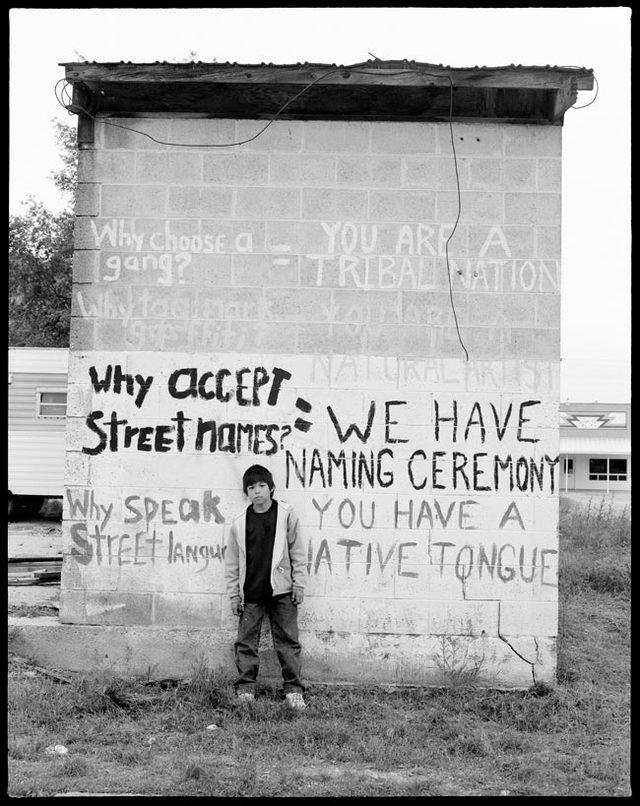 Why choose a
gang?
=
YOU ARE A
TRIBAL NATION
Why tag mark
graffiti?
NATURAL ARTIST
Why ACCEPT
Street names?
=
WE HAVE
NAMING CEREMONY
Why SPEAK
Street langu
YOU HAVE A
NATIVE TONGUE